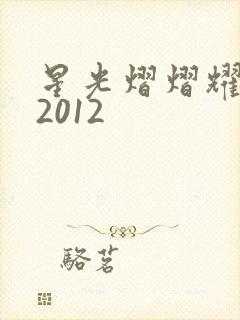 星光熠熠耀
2012
駱茗